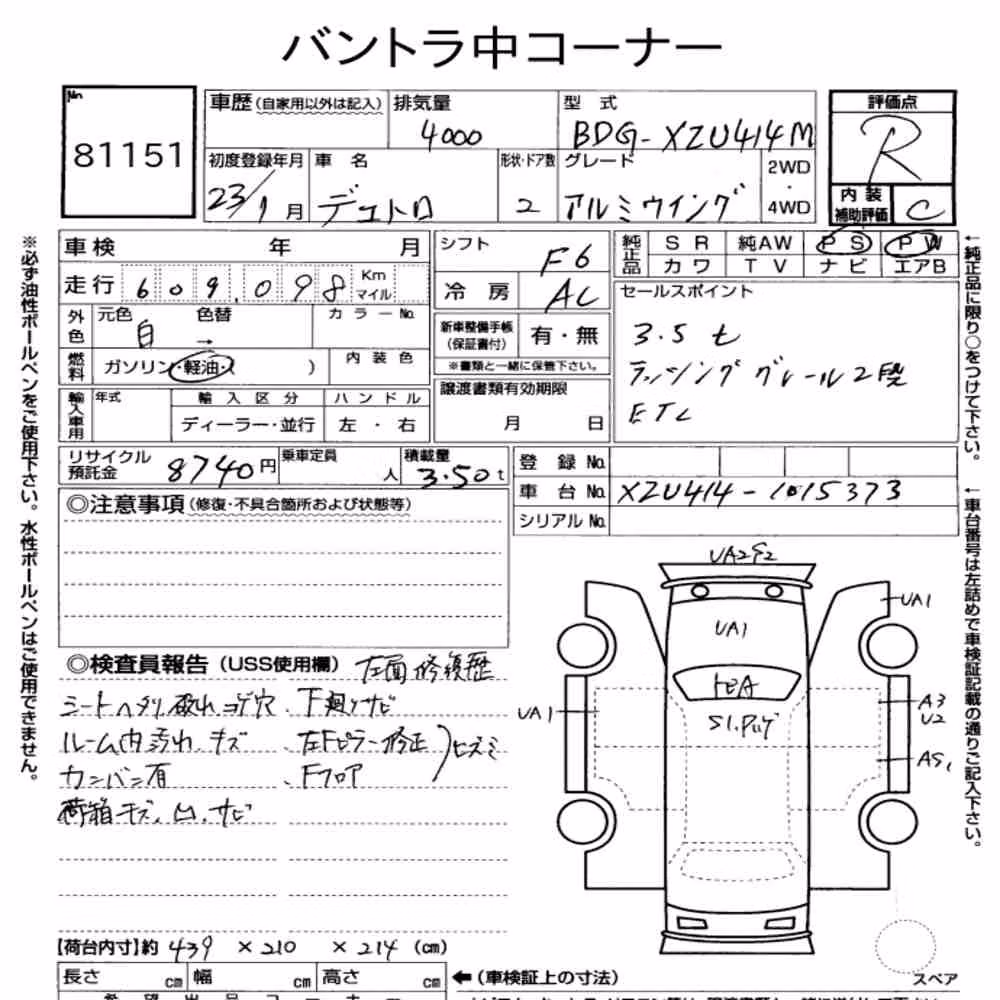 バントラ中コーナー
No.
81151
車歴（自家用以外は記入） 排気量 型 式 評価点
4000 BDG-XZU414M R
初度登録年月 車 名 形状・ドア数 グレード 2WD・4WD
23/1月 デュトロ 2 アルミウイング
内装補助評価 C
車検 年 月
シフト F6
純正品 SR 純AW PS PW
カワ TV ナビ エアB
走行 609.098 Km マイル
冷房 AC
セールスポイント
3.5t
ラッシングレール2段
ETC
外色 元色 白 → 色替 カラーNo.
新車整備手帳（保証書付） 有・無
※書類と一緒に保管下さい。
燃料 ガソリン・軽油・（ ） 内装色
譲渡書類有効期限
月 日
輸入車用 年式 輸入区分 ハンドル
ディーラー・並行 左・右
リサイクル預託金 8740円 乗車定員 人 積載量 3.50t
登録No.
車台No. XZU414-1015373
シリアルNo.
※必ず油性ボールペンをご使用下さい。水性ボールペンはご使用できません。
←純正品に限り○をつけて下さい。
←車台番号は左詰めで車検証記載の通りご記入下さい。
◎注意事項（修復・不具合箇所および状態等）
◎検査員報告（USS使用欄） 左面修復歴
シートヘタリ破れコゲ穴 下廻りサビ
ルーム内汚れ、キズ 左Fピラー修正
カンバン有 Fフロア
）ヒズミ
荷箱キズ、凹、サビ
UA2S2
UA1
UA1
UA1
A3
U2
AS1
【荷台内寸】約 439 ×210 ×214 （cm）
長さ cm 幅 cm 高さ cm ←（車検証上の寸法）
スペア